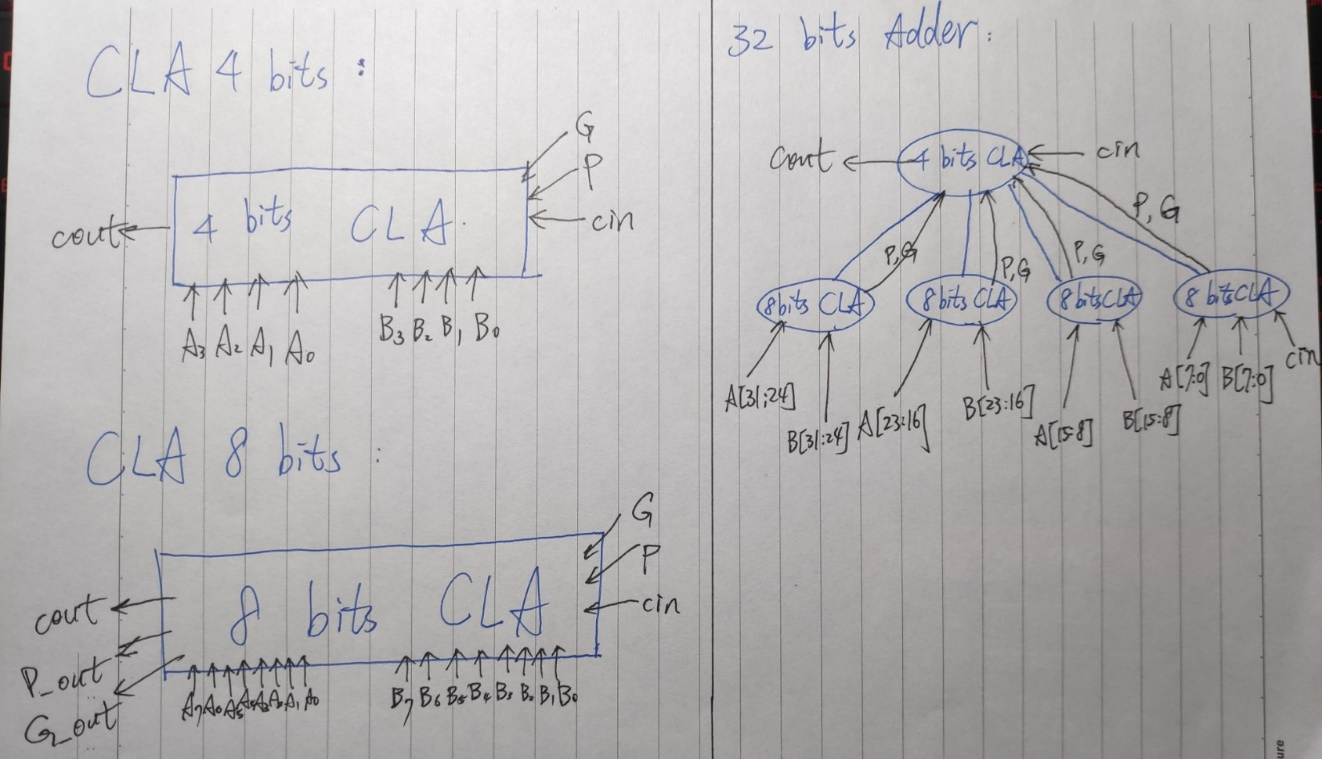 CLA 4 bits :
G
P
cin
4 bits CLA.
cout
A3 A2 A1 A0 B3 B2 B1 B0
CLA 8 bits :
G
P
cin
8 bits CLA
cout
P_out
G_out
A7 A6 A5 A4 A3 A2 A1 A0 B7 B6 B5 B4 B3 B2 B1 B0
32 bits Adder:
cout 4 bits CLA cin
P,G P,G P,G P,G
8bits CLA 8bits CLA 8bitsCLA 8 bitsCLA
A[31:24] B[31:24] A[23:16] B[23:16] A[15:8] B[15:8] A[7:0] B[7:0] cin
ure